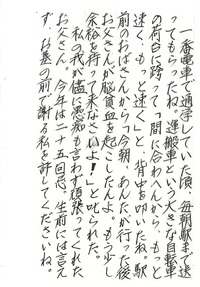 一番電車で通学していた頃、毎朝駅まで送
ってもらったね。運搬車という大きな自転車
の荷台に跨って「間に合わへんから、もっと
速く、もっと速く」と、背中を叩いたね。駅
前のおばさんから「今朝、あんたが行った後
お父さんが脳貧血を起こしたんよ。もう少し
余裕を持って来なさいよ!」と叱られた。
私の我が儘に愚痴も言わず頑張ってくれた
お父さん。今年は二十五回忌、生前には言え
ず、お墓の前で謝る私を許してくださいね。